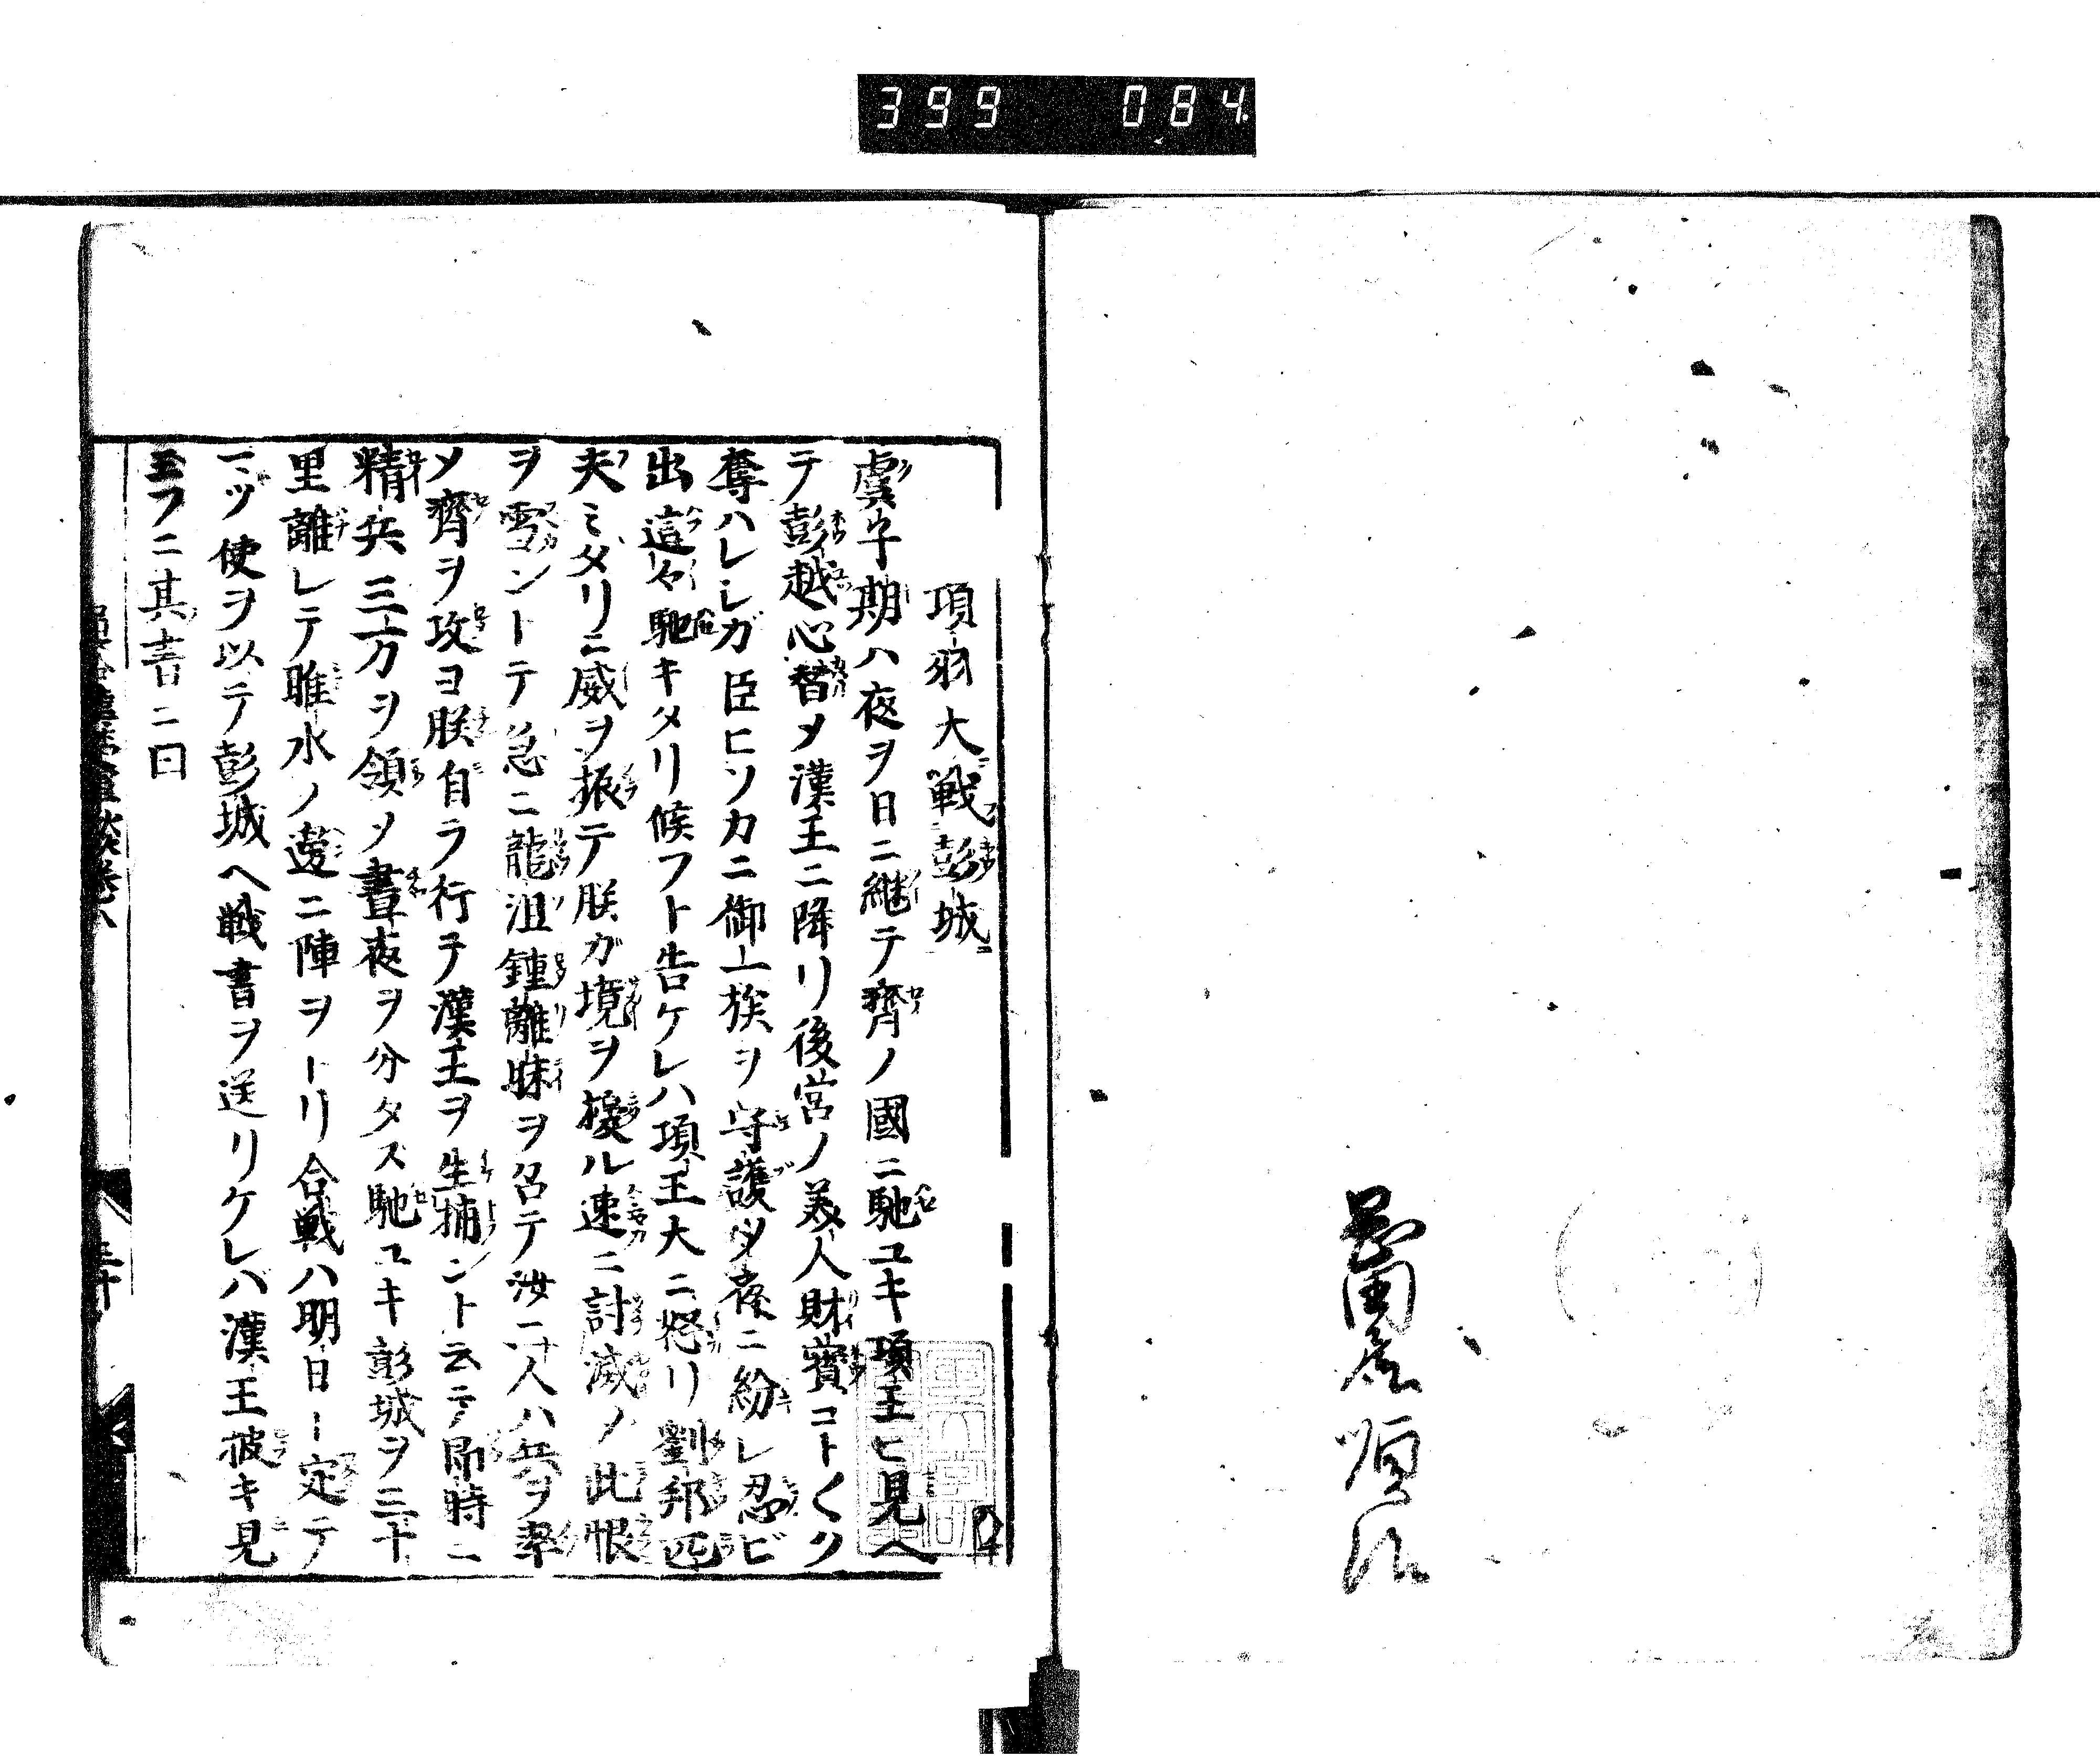 399 084
項羽大戰彭城
虞子期ハ夜ヲ日ニ継テ齊ノ國ニ馳ユキ項王ヒ見ヘ
テ彭越心替メ漢王ニ降リ後宮ノ美人財寳コト〱ク
奪ハレシガ臣ヒソカニ御一族ヲ守護メ夜ニ紛レ忍ビ
出這々馳キタリ候フト告ケレハ項王大ニ怒リ劉邦匹
夫ミタリニ威ヲ振テ朕ガ境ヲ擾ル速ニ討滅メ此恨
ヲ雪ントテ急ニ龍沮鍾離昧ヲ召テ汝二人ハ兵ヲ率
メ齊ヲ攻ヨ朕自ラ行テ漢王ヲ生捕ント云テ即時ニ
精兵三万ヲ領メ晝夜ヲ分タス馳ユキ彭城ヲ三十
里離レテ睢水ノ邉ニ陣ヲトリ合戦ハ明日ト定テ
一ツ使ヲ以テ彭城ヘ戦書ヲ送リケレハ漢王披キ見
玉フニ其書ニ曰